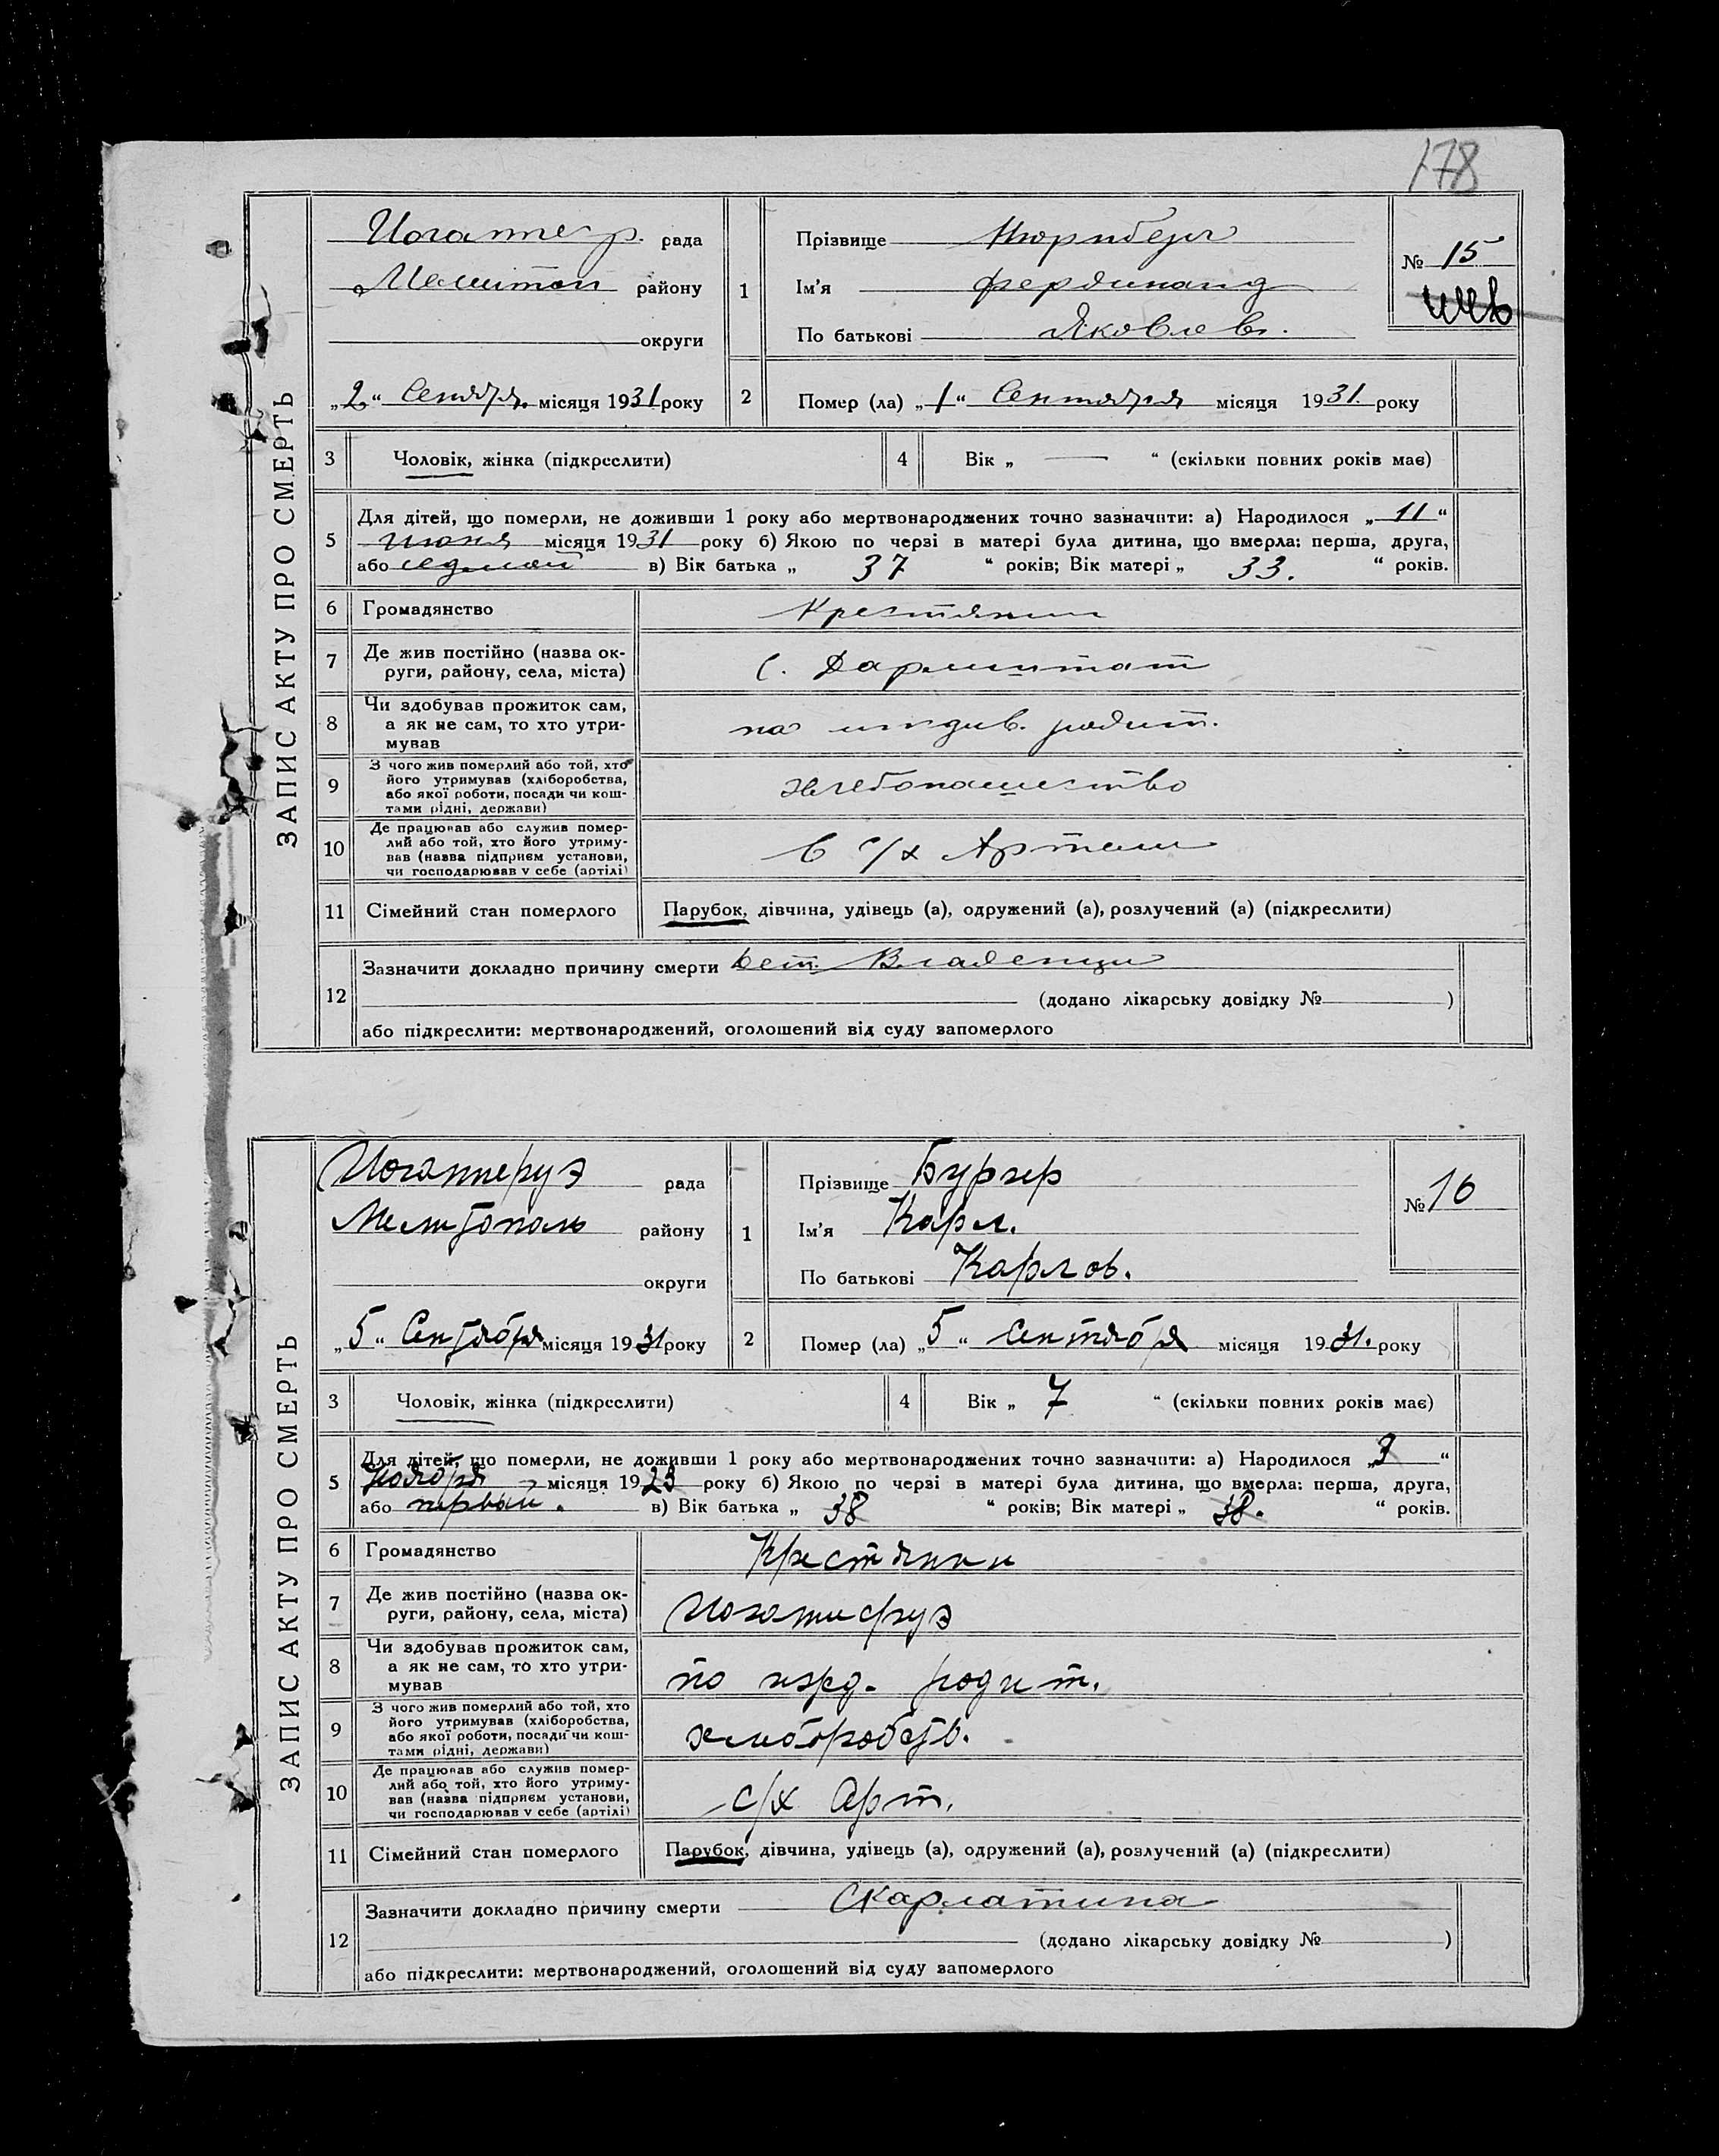 178
ЗАПИС АКТУ ПРО СМЕРТЬ
рада
Мелитоп району
округи
„2“ Сентяр. місяця 1931 року
1
Прізвище Нюрнберг
Ім'я Фердинанд
По батькові Яковлев.
№ 15
2 Помер (ла) „1“ Сентября місяця 1931. року
3 Чоловік, жінка (підкреслити)
4 Вік „ — “ (скільки повних років має)
5 Для дітей, що померли, не доживши 1 року або мертвонароджених точно зазначити: а) Народилося „11“
июня місяця 1931 року б) Якою по черзі в матері була дитина, що вмерла: перша, друга,
або седмой в) Вік батька „ 37 “ років; Вік матері „ 33. “ років.
6 Громадянство Крестянин
7 Де жив постійно (назва ок-
руги, району, села, міста) с. Дармштат
8 Чи здобував прожиток сам,
а як не сам, то хто утри-
мував на иждив. родит.
9 З чого жив померлий або той, хто
його утримував (хліборобства,
або якої роботи, посади чи кош-
тами рідні, держави) хлебопашество
10 Де працював або служив помер-
лий або той, хто його утриму-
вав (назва підприєм установи,
чи господарював у себе (артілі) в с/х Артели
11 Сімейний стан померлого Парубок, дівчина, удівець (а), одружений (а), розлучений (а) (підкреслити)
12 Зазначити докладно причину смерти
(додано лікарську довідку № )
або підкреслити: мертвонароджений, оголошений від суду запомерлого
ЗАПИС АКТУ ПРО СМЕРТЬ
Иоганнеруэ рада
Мелитополь району
округи
„5“ Сентября місяця 1931 року
1
Прізвище Бургер
Ім'я Карл.
По батькові Карлов.
№ 16
2 Помер (ла) „5“ Сентября місяця 1931. року
3 Чоловік, жінка (підкреслити)
4 Вік „ 7 “ (скільки повних років має)
5 Для дітей, що померли, не доживши 1 року або мертвонароджених точно зазначити: а) Народилося „3“
Ноября місяця 1923 року б) Якою по черзі в матері була дитина, що вмерла: перша, друга,
або первый. в) Вік батька „ 38 “ років; Вік матері „ 38. “ років.
6 Громадянство Крестянин
7 Де жив постійно (назва ок-
руги, району, села, міста)
8 Чи здобував прожиток сам,
а як не сам, то хто утри-
мував родит.
9 З чого жив померлий або той, хто
його утримував (хліборобства,
або якої роботи, посади чи кош-
тами рідні, держави) хлиборобств.
10 Де працював або служив помер-
лий або той, хто його утриму-
вав (назва підприєм установи,
чи господарював у себе (артілі) с/х Арт.
11 Сімейний стан померлого Парубок, дівчина, удівець (а), одружений (а), розлучений (а) (підкреслити)
12 Зазначити докладно причину смерти Скарлатина
(додано лікарську довідку № )
або підкреслити: мертвонароджений, оголошений від суду запомерлого